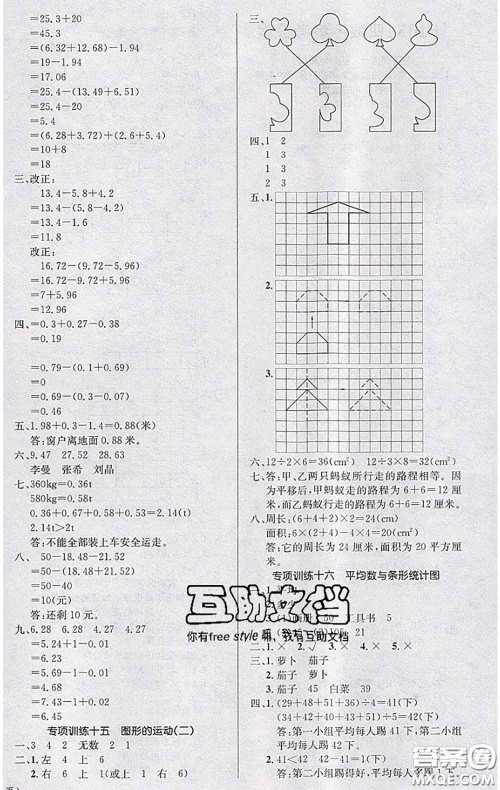 =25.4-20
=5.4
=(6.32+12.68)-1.94
=19-1.94
=17.06
=25.4-(13.49+6.51)
=25.4-20
=5.4
=(6.28+3.72)+(2.6+5.4)
=10+8
=18
三、改正:
13.4-5.8+4.2
=13.4-1.6
=11.8
改正:
16.72-(9.72-5.96)
=16.72-9.72+5.96
=7+5.96
=12.96
四、=0.3+0.27-0.38
=0.19
=0.79-(0.1+0.23)
=0.79-0.33
=0.46
五、1.98+0.3-1.4=0.88(米)
答:窗户离地面 0.88 米。
六、9.47 27.52 28.63
李曼 张希 刘晶
七、360kg=0.36t
580kg=0.58t
2.14t>2t
答:不能全部装上车安全运走。
八、50-18.48-21.52
=50-(18.48+21.52)
=50-40
=10(元)
答:还剩 10 元。
九、6.28 8.28 4.27 4.27
=5.24+1-0.01
=6.24-0.01
=6.23
=5.46+1-0.01
=6.46-0.01
=6.45
专项训练十五 图形的运动(二)
一、3 4 2 无数 2 1
二、1.左 4 上 6
2.右 6 上 1(或上 1 右 6)
三、
四、1 2
1 3
2 3
五、1.
2.
3.
六、12÷2×6=36(cm²) 12÷3×8=32(cm²)
七、答:甲、乙两只蚂蚁所行走的路程相等。因
为平移后,甲蚂蚁行走的路程为 6+6=12 厘
米,而乙蚂蚁行走的路程也为 6+6=12 厘米。
八、周长:(6+4+2)×2=24(cm)
面积:6×(4+2)-2=21(cm²)
答:它的周长为 24 厘米,面积为 21 平方厘米。
专项训练十六 平均数与条形统计图
互助文档
你有free style 嘛,我有互助文档
三、1.萝卜 茄子
2.萝卜 茄子
3.茄子 45 白菜 39
四、1.(29+48+51+36)÷4=41(下)
(34+42+49+43)÷4=42(下)
答:第一小组平均每人踢 41 下,第二小组
平均每人踢 42 下。
2.41<42 42-41=1(下)
答:第二小组踢得好,平均每人多踢 1 下。
答案圈
MXQE.COM